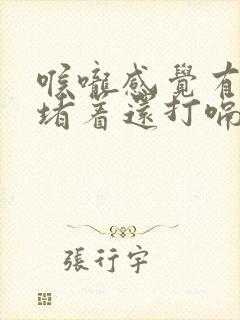 喉嚨感覺有
堵着還打嗝
張行宇